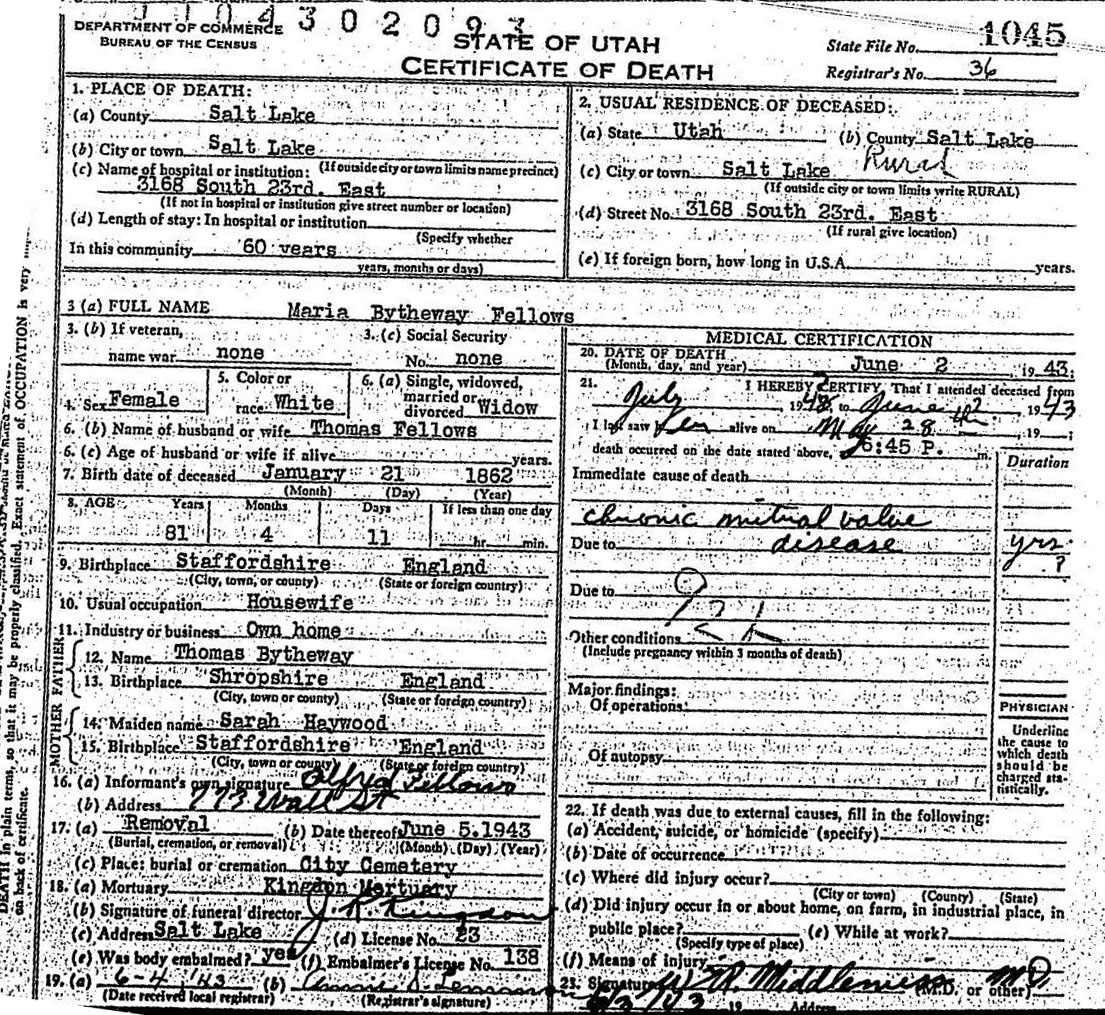 1104302093
DEPARTMENT OF COMMERCE
BUREAU OF THE CENSUS
STATE OF UTAH
CERTIFICATE OF DEATH
State File No. 1045
Registrar's No. 36
1. PLACE OF DEATH:
(a) County Salt Lake
(b) City or town Salt Lake
(If outside city or town limits name precinct)
(c) Name of hospital or institution:
3168 South 23rd. East
(If not in hospital or institution give street number or location)
(d) Length of stay: In hospital or institution
(Specify whether
In this community 60 years
years, months or days)
2. USUAL RESIDENCE OF DECEASED:
(a) State Utah (b) County Salt Lake
(c) City or town Salt Lake Rural
(If outside city or town limits write RURAL)
(d) Street No. 3168 South 23rd. East
(If rural give location)
(e) If foreign born, how long in U.S.A. years.
3 (a) FULL NAME Maria Bytheway Fellows
3. (b) If veteran,
name war none
3. (c) Social Security
No. none
4. Sex Female
5. Color or
race White
6. (a) Single, widowed,
married or
divorced Widow
6. (b) Name of husband or wife Thomas Fellows
6. (c) Age of husband or wife if alive years.
7. Birth date of deceased January 21 1862
(Month) (Day) (Year)
8. AGE Years Months Days If less than one day
81 4 11 hr. min.
9. Birthplace Staffordshire England
(City, town, or county) (State or foreign country)
10. Usual occupation Housewife
11. Industry or business Own home
FATHER
12. Name Thomas Bytheway
13. Birthplace Shropshire England
(City, town or county) (State or foreign country)
MOTHER
14. Maiden name Sarah Haywood
15. Birthplace Staffordshire England
(City, town or county) (State or foreign country)
16. (a) Informant's own signature Alfred Fellows
(b) Address 773 Wall St
17. (a) Removal (b) Date thereof June 5. 1943
(Burial, cremation, or removal) (Month) (Day) (Year)
(c) Place: burial or cremation City Cemetery
18. (a) Mortuary Kingdon Mortuary
(b) Signature of funeral director J. R. Kingdon
(c) Address Salt Lake (d) License No. 23
(e) Was body embalmed? yes (f) Embalmer's License No. 138
19. (a) 6-4-'43 (b)
(Date received local registrar) (Registrar's signature)
MEDICAL CERTIFICATION
20. DATE OF DEATH
(Month, day, and year) June 2 1943;
21. I HEREBY CERTIFY, That I attended deceased from
July 19 to June 19 43
I last saw her alive on May 28 th, 19 ;
death occurred on the date stated above, 6:45 P. m.
Duration
Immediate cause of death
chronic mitral valve
Due to disease yrs.
?
Due to
Other conditions
(Include pregnancy within 3 months of death)
Major findings:
Of operations:
Of autopsy
PHYSICIAN
Underline
the cause to
which death
should be
charged sta-
tistically.
22. If death was due to external causes, fill in the following:
(a) Accident, suicide, or homicide (specify)
(b) Date of occurrence
(c) Where did injury occur?
(City or town) (County) (State)
(d) Did injury occur in or about home, on farm, in industrial place, in
public place? (e) While at work?
(Specify type of place)
(f) Means of injury
23. Signature W R. Middlemiss MD
(M.D. or other)
6/3/43 19 Address
DEATH in plain terms, so that it may be properly classified. Exact statement of OCCUPATION is very
on back of certificate.